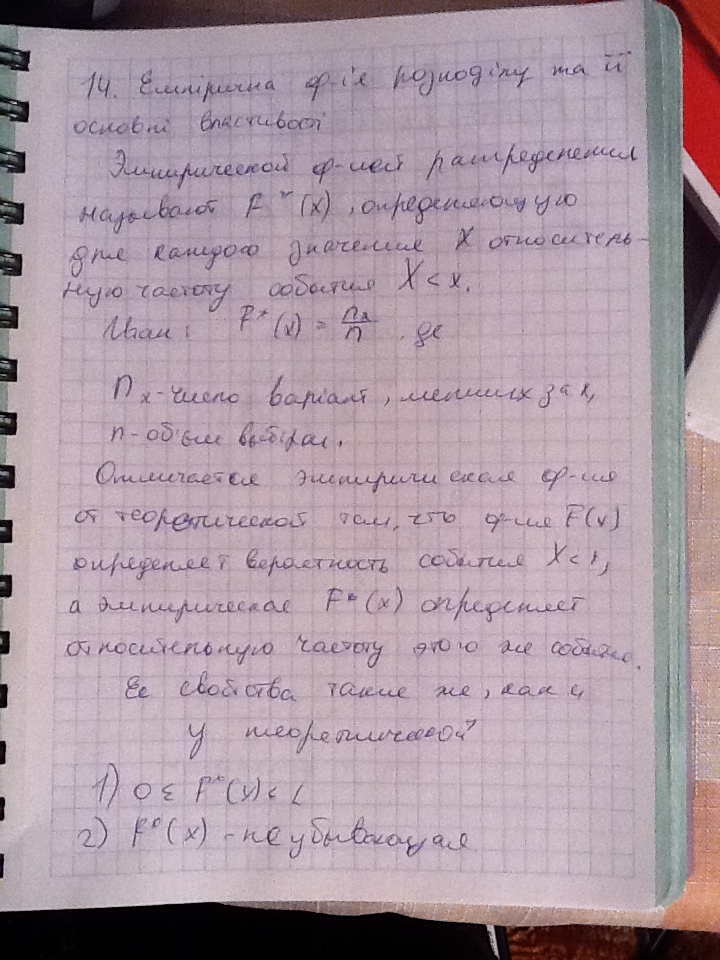 14. Емпірична ф-ія розподілу та її
основні властивості
Эмпирической ф-цией распределения
называют F*(x), определяющую
для каждого значения x относитель-
ную частоту события X < x.
Итак: F*(x) = nx/n где
nx - число вариант, меньших x,
n - объем выборки.
Отличается эмпирическая ф-ция
от теоретической тем, что ф-ция F(x)
определяет вероятность события X < x,
а эмпирическая F*(x) определяет
относительную частоту этого же события.
Ее свойства такие же, как и
у теоретической?
1) 0 ≤ F*(x) ≤ 1
2) F*(x) - неубывающая